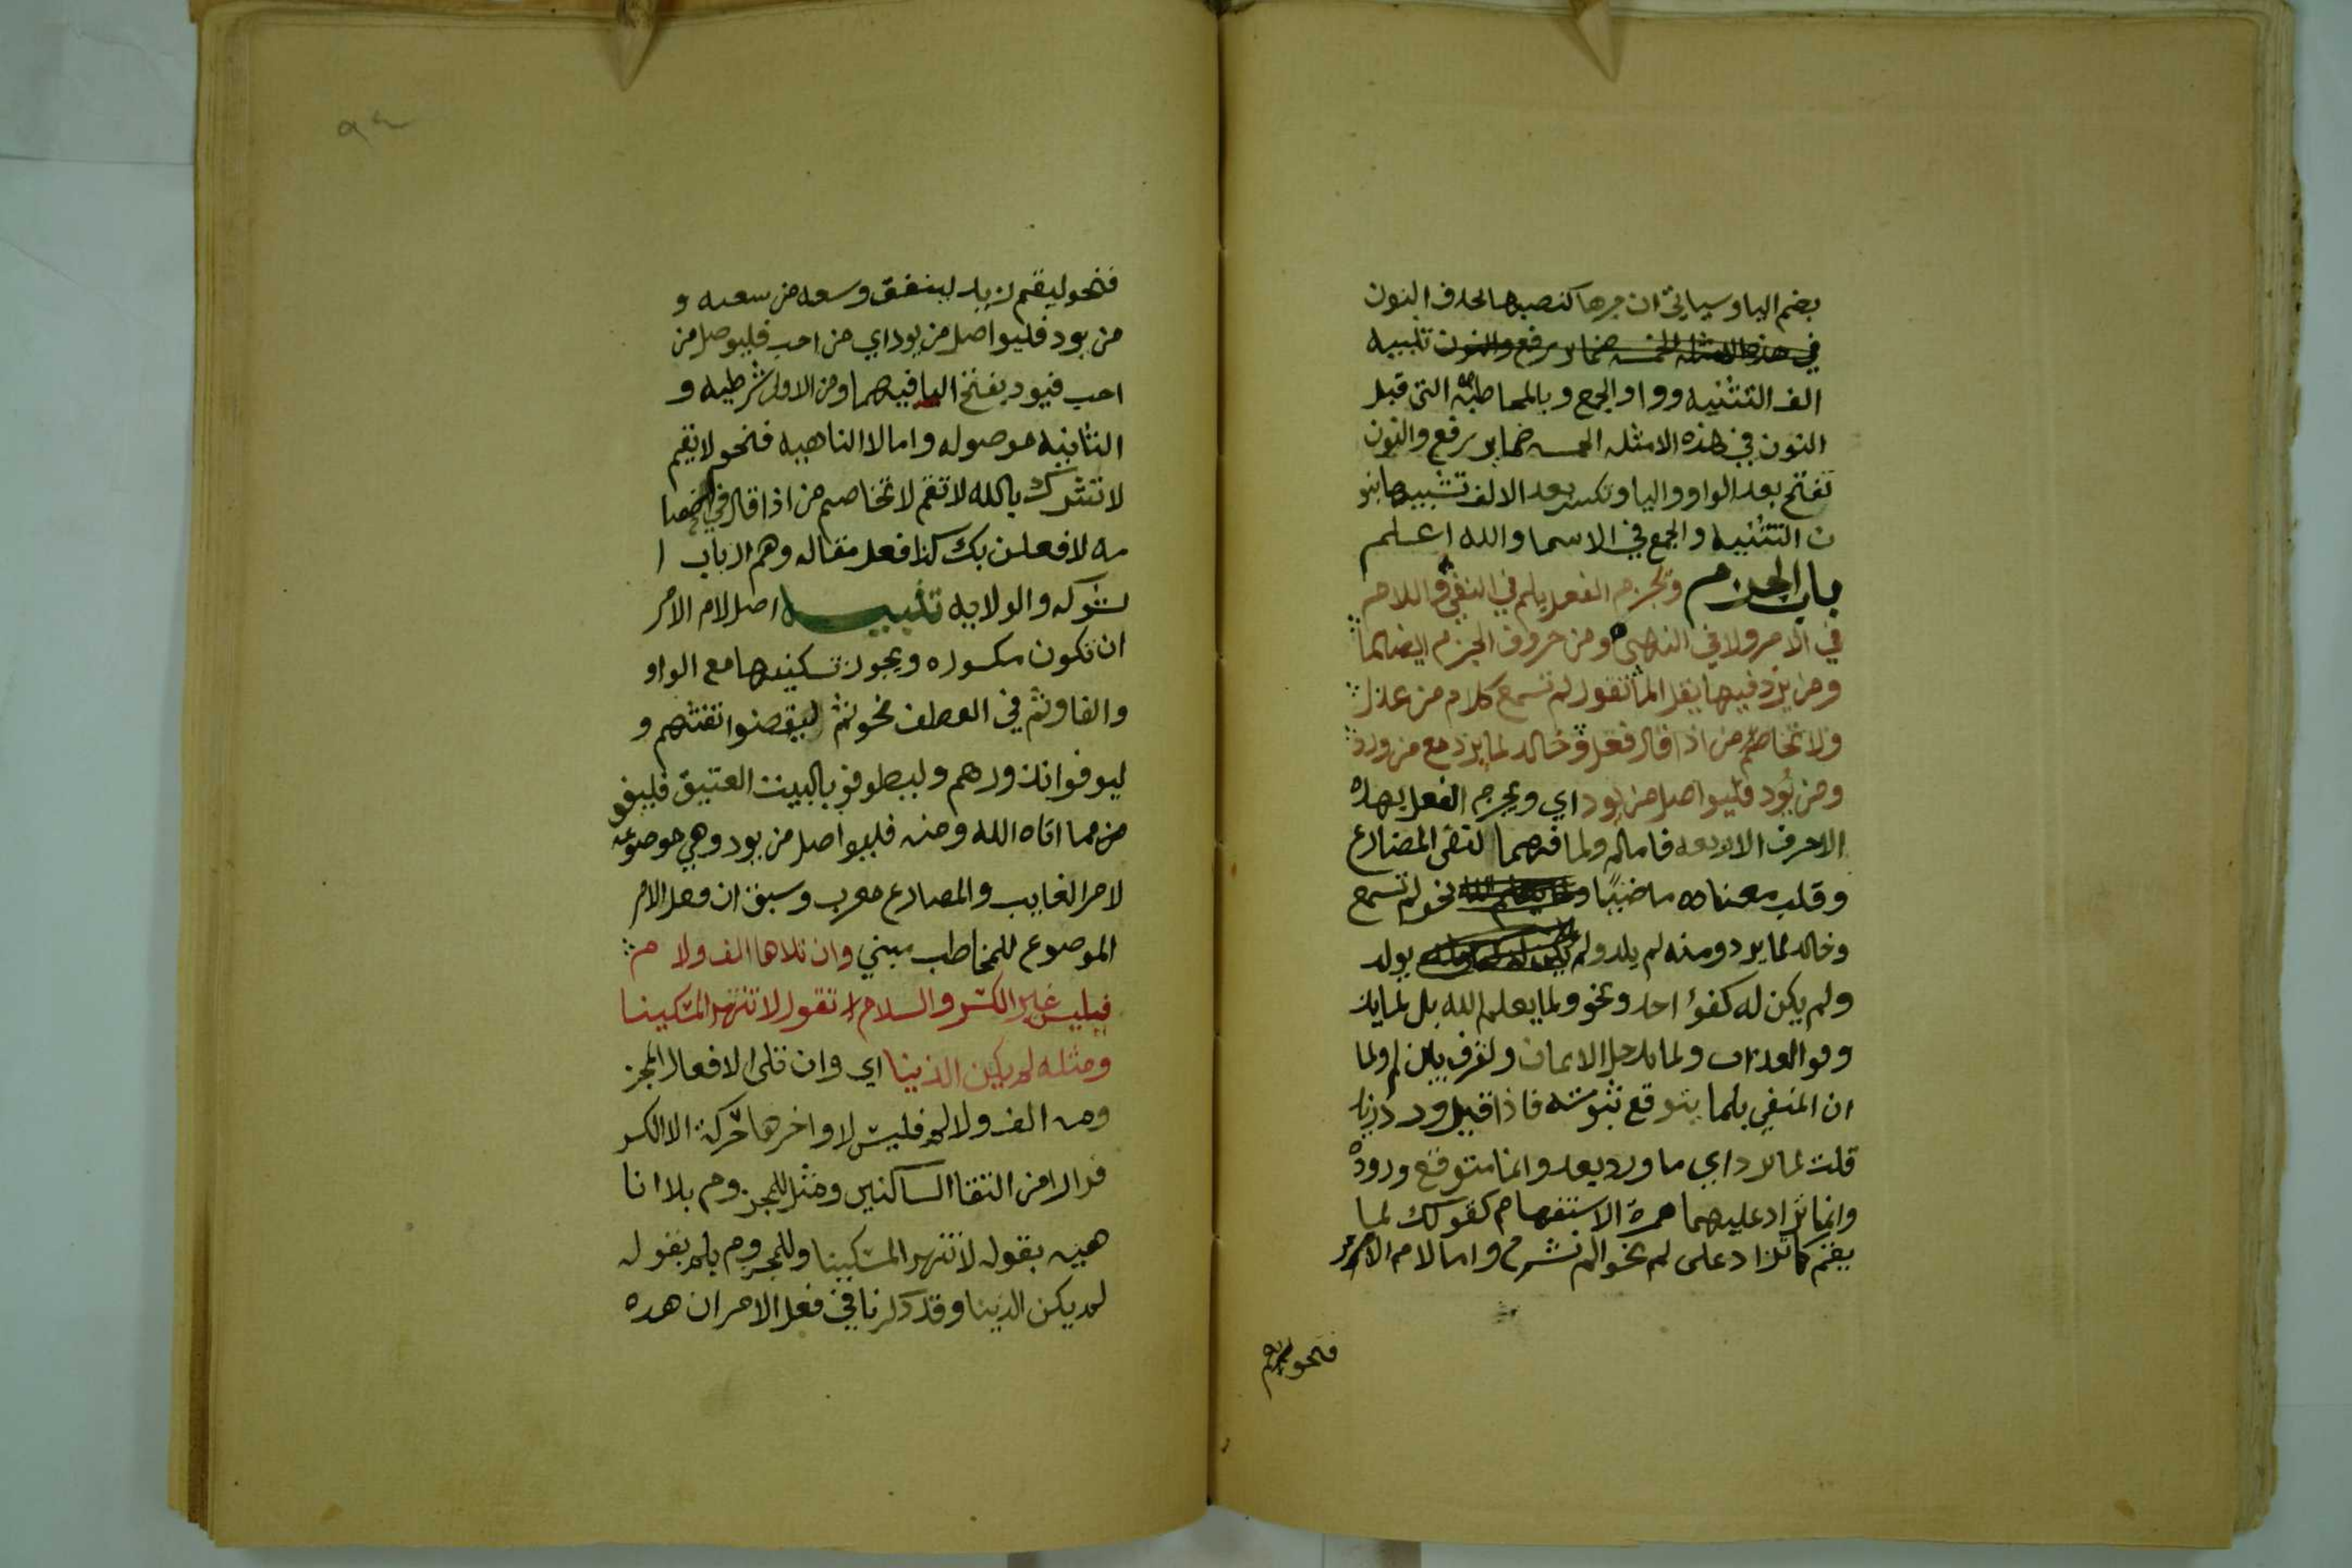 بضم اليا وسياتي ان جرمها كنصبها بحذف النون
في هذه الامثله الخمسه ضماير رفع والنون تنبيه
الف التثنيه وواو الجمع ويا المخاطبه التي قبل
النون في هذه الامثله الخمسه ضماير رفع والنون
تفتح بعد الواو واليا وتكسر بعد الالف تشبيها بنو
ن التثنيه والجمع في الاسما والله اعلم
باب الجزم وتجزم الفعل بلم في النفي واللام
في الامر ولا في النهي ومن حروف الجزم ايضا لما
ومن يزد فيها يقل الما تقول لم تسمع كلام من عذل
ولا تخاصم من اذا قال فعل وخالد لما يرد مع من ورد
ومن يود فليواصل من يود اي ويجزم الفعل بهذه
الاحرف الاربعه فاما لم ولما فهما لنفي المضارع
وقلب معناه ماضيًا ولما يعلم الله نحو لم تسمع
وخالد لما يرد ومنه لم يلد ولم يولد
ولم يكن له كفؤا احد ونحو ولما يعلم الله بل لما يذ
وقوا العذاب ولما يدخل الايمان والفرق بين لم ولما
ان المنفي بلما يتوقع ثبوته فاذا قيل ورد زيد
قلت لما يرد اي ما ورد بعد وانا متوقع وروده
وانما تزاد عليهما همزة الاستفهام كقولك لما
يقم كما تزاد على لم نحو الم نشرح واما لام الامر
فنحو ليقم
فنحو ليقم زيد لينفق ذو سعه من سعته و
من يود فليواصل من يود اي من احب فليوصل من
احب فيود بفتح اليا فيهما ومن الاولى شرطيه و
الثانيه موصوله واما لا الناهيه فنحو لا تقم
لا تشرك بالله لا تقم لا تخاصم من اذا قال في الخصا
مه لافعلن بك كذا فعل مقاله وهم ارباب ا
لشوكه والولايه تنبيه اصل لام الامر
ان تكون مكسوره ويجوز تسكينها مع الواو
والفا وثم في العطف نحو ثم ليقضوا تفثهم و
ليوفوا نذورهم وليطوفو بالبيت العتيق فلينفق
من مما اتاه الله ومنه فليواصل من يود وهي موضوعه
لامر الغايب والمضارع معرب وسبق ان فعل الامر
الموضوع للمخاطب مبني وان تلاها الف ولام
فليس غير الكسر والسلام تقول لا تنتهر المسكينا
ومثله لم يكن الذينا اي وان تلى الافعال المجز
ومه الف ولام فليس لاواخرها حركة الا الكسر
فرارا من التقا الساكنين ومثل للمجزوم بلا النا
هيه بقوله لا تنتهر المسكينا وللمجزوم بلم بقوله
لم يكن الذينا وقد ذكرنا في فعل الامر ان هذه